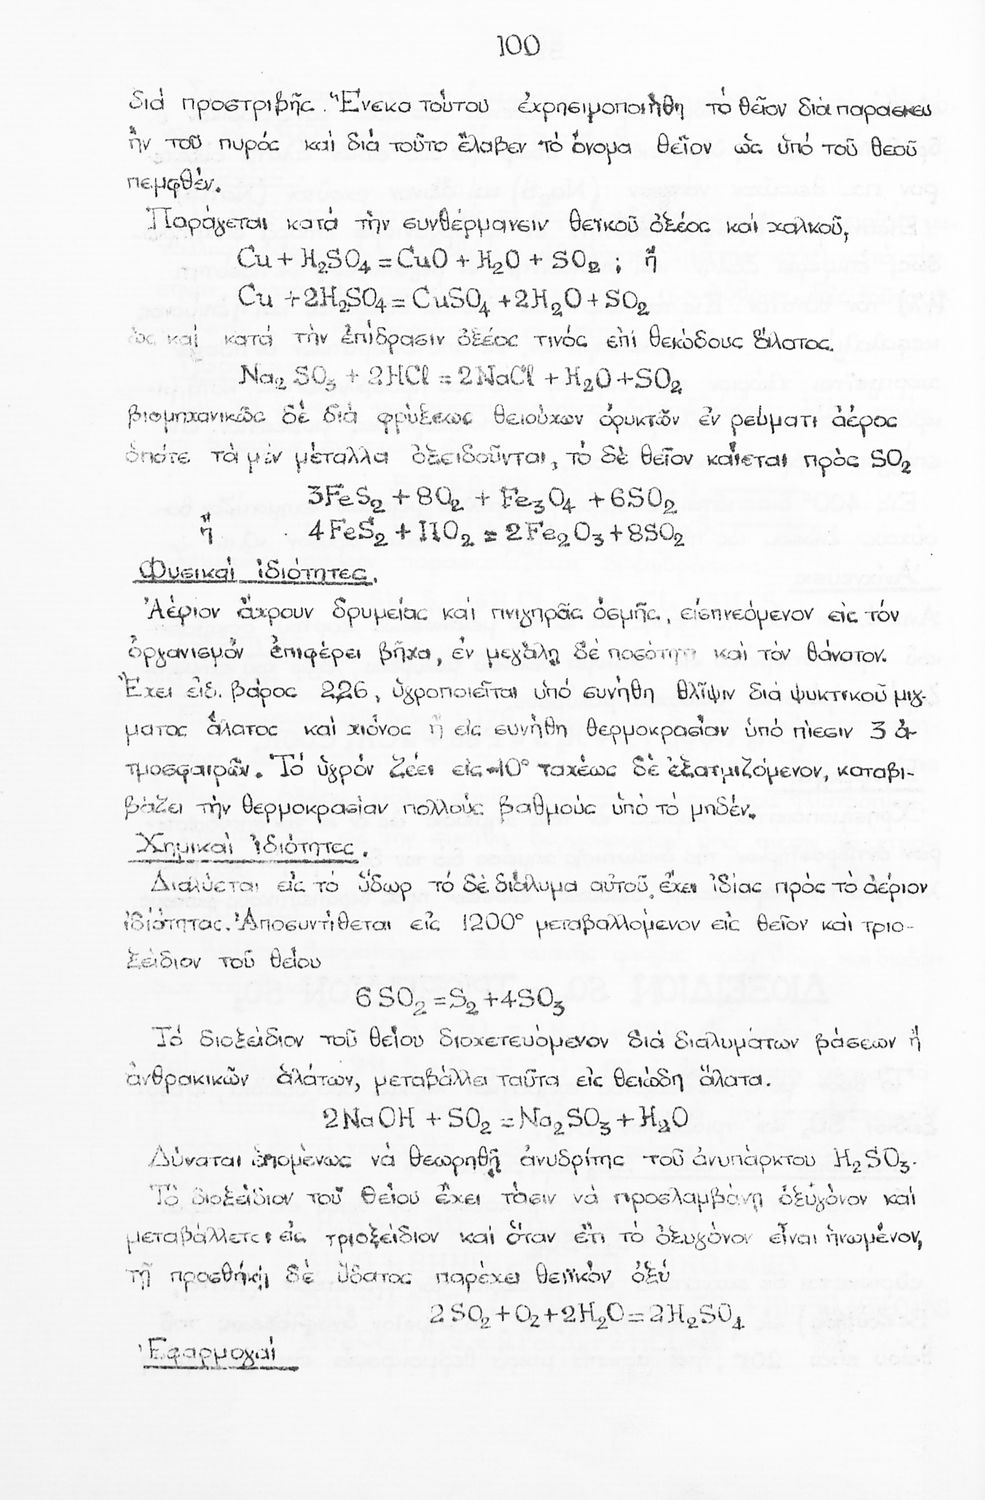 100
διά προστριβῆς. Ἕνεκα τούτου ἐχρησιμοποιήθη τό θεῖον διά παρασκευ
ήν τοῦ πυρός καί διά τοῦτο ἔλαβεν τό ὄνομα θεῖον ὡς ὑπό τοῦ θεοῦ
πεμφθέν.
Παράγεται κατά τήν συνθέρμανσιν θεϊκοῦ ὀξέος καί χαλκοῦ,
Cu + H₂SO₄ = CuO + H₂O + SO₂ ; ἤ
Cu + 2H₂SO₄ = CuSO₄ + 2H₂O + SO₂
ὡς καί κατά τήν ἐπίδρασιν ὀξέος τινός ἐπί θειώδους ἅλατος.
Na₂SO₃ + 2HCl = 2NaCl + H₂O + SO₂
βιομηχανικῶς δέ διά φρύξεως θειούχων ὀρυκτῶν ἐν ρεύματι ἀέρος
ὁπότε τά μέν μέταλλα ὀξειδοῦνται, τό δέ θεῖον καίεται πρός SO₂
3FeS₂ + 8O₂ + Fe₃O₄ + 6SO₂
ἤ 4FeS₂ + 11O₂ = 2Fe₂O₃ + 8SO₂
Φυσικαί ἰδιότητες.
Ἀέριον ἄχρουν δρυμείας καί πνιγηρᾶς ὀσμῆς, εἰσπνεόμενον εἰς τόν
ὀργανισμόν ἐπιφέρει βῆχα, ἐν μεγάλῃ δέ ποσότητι καί τόν θάνατον.
Ἔχει εἰδ. βάρος 2,26, ὑγροποιεῖται ὑπό συνήθη θλῖψιν διά ψυκτικοῦ μιγ-
ματος ἅλατος καί χιόνος ἤ εἰς συνήθη θερμοκρασίαν ὑπό πίεσιν 3 ἀ-
τμοσφαιρῶν. Τό ὑγρόν ζέει εἰς -10° ταχέως δέ ἐξατμιζόμενον, καταβι-
βάζει τήν θερμοκρασίαν πολλούς βαθμούς ὑπό τό μηδέν.
Χημικαί ἰδιότητες.
Διαλύεται εἰς τό ὕδωρ τό δέ διάλυμα αὐτοῦ ἔχει ἰδίας πρός τό ἀέριον
ἰδιότητας. Ἀποσυντίθεται εἰς 1200° μεταβαλλόμενον εἰς θεῖον καί τριο-
ξείδιον τοῦ θείου
6SO₂ = S₂ + 4SO₃
Τό διοξείδιον τοῦ θείου διοχετευόμενον διά διαλυμάτων βάσεων ἤ
ἀνθρακικῶν ἁλάτων, μεταβάλλει ταῦτα εἰς θειώδη ἅλατα.
2NaOH + SO₂ = Na₂SO₃ + H₂O
Δύναται ἑπομένως νά θεωρηθῇ ἀνυδρίτης τοῦ ἀνυπάρκτου H₂SO₃.
Τό διοξείδιον τοῦ θείου ἔχει τάσιν νά προσλαμβάνῃ ὀξυγόνον καί
μεταβάλλεται εἰς τριοξείδιον καί ὅταν ἔτι τό ὀξυγόνον εἶναι ἡνωμένον,
τῇ προσθήκῃ δέ ὕδατος παρέχει θεϊκόν ὀξύ
2SO₂ + O₂ + 2H₂O = 2H₂SO₄
Ἐφαρμογαί